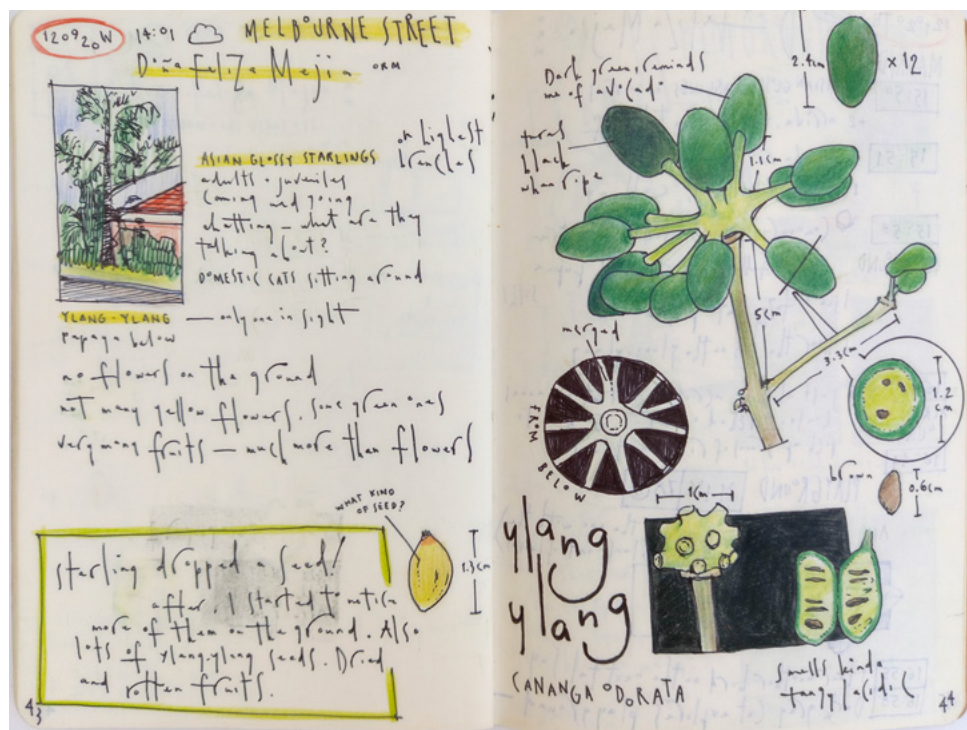 120920W 14:01 MELBOURNE STREET
Mejia
on highest
branches
ASIAN GLOSSY STARLINGS
adults + juveniles
coming and going
chatting – what are they
talking about?
DOMESTIC CATS sitting around
YLANG-YLANG — only one in sight
papaya below
no flowers on the ground
not many yellow flowers. Some green ones
very many fruits — much more than flowers
WHAT KIND
OF SEED?
1.3cm
starling dropped a seed!
after I started to notice
more of them on the ground. Also
lots of ylang-ylang seeds. Dried
and rotten fruits.
43
Dark green, reminds
me of avocado
turns
black
when ripe
2.4cm
×12
1.1cm
5cm
3.3cm
merged
FROM
BELOW
1.2
cm
brown
0.6cm
1cm
ylang
ylang
CANANGA ODORATA
smells kinda
tangy/acidic
44